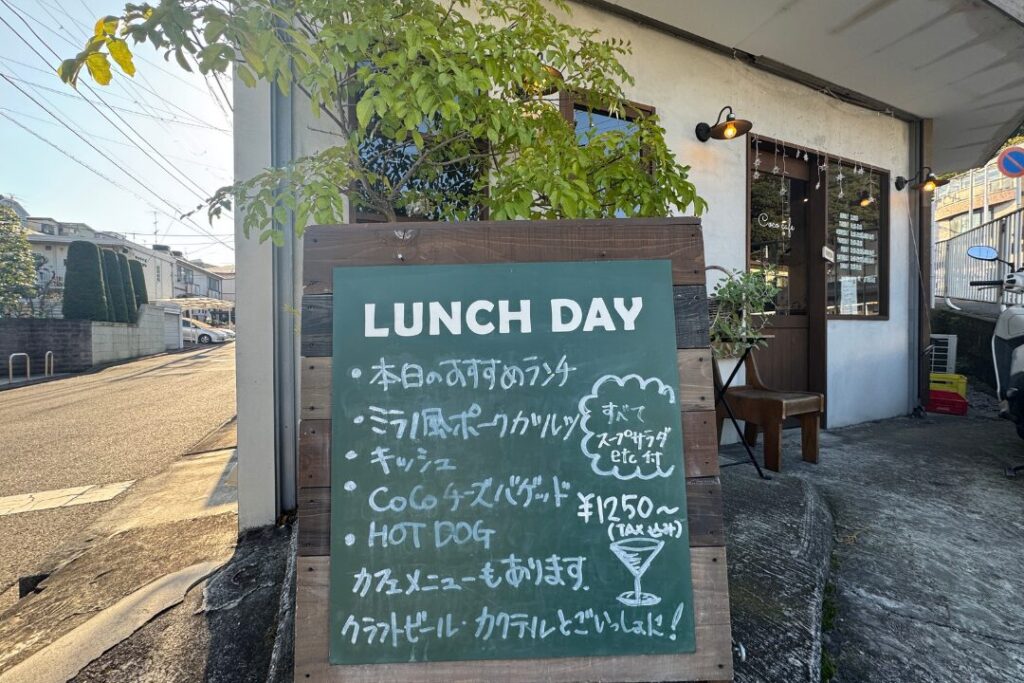 LUNCH DAY
• 本日のおすすめランチ
• ミラノ風ポークカツルツ
• キッシュ
• CoCoチーズバゲッド
• HOT DOG
すべて
スープサラダ
etc 付
¥1250~
(TAX込み)
カフェメニューもあります.
クラフトビール・カクテルとごいっしょに!
Coco Cafe